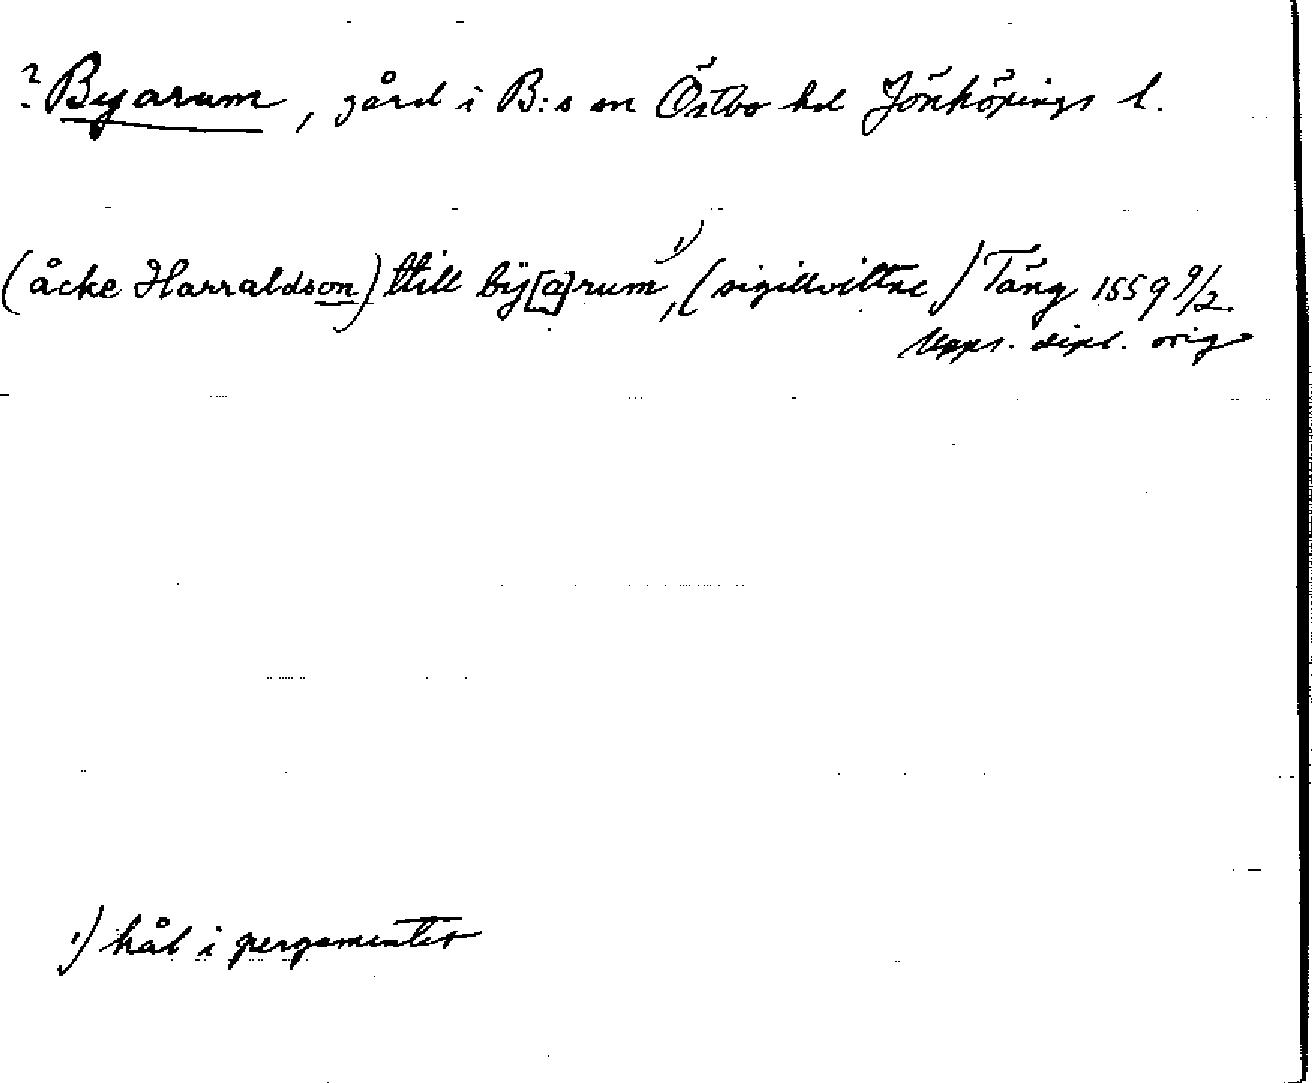 ? Byarum, gård i B:s sn Östbo hd Jönköpings l.
(åcke Harraldson) ttill bÿ[a]rum¹⁾, (sigillvittne) Täng 1559 9/2.
Upps. dipl. orig
¹⁾ hål i pergamentet